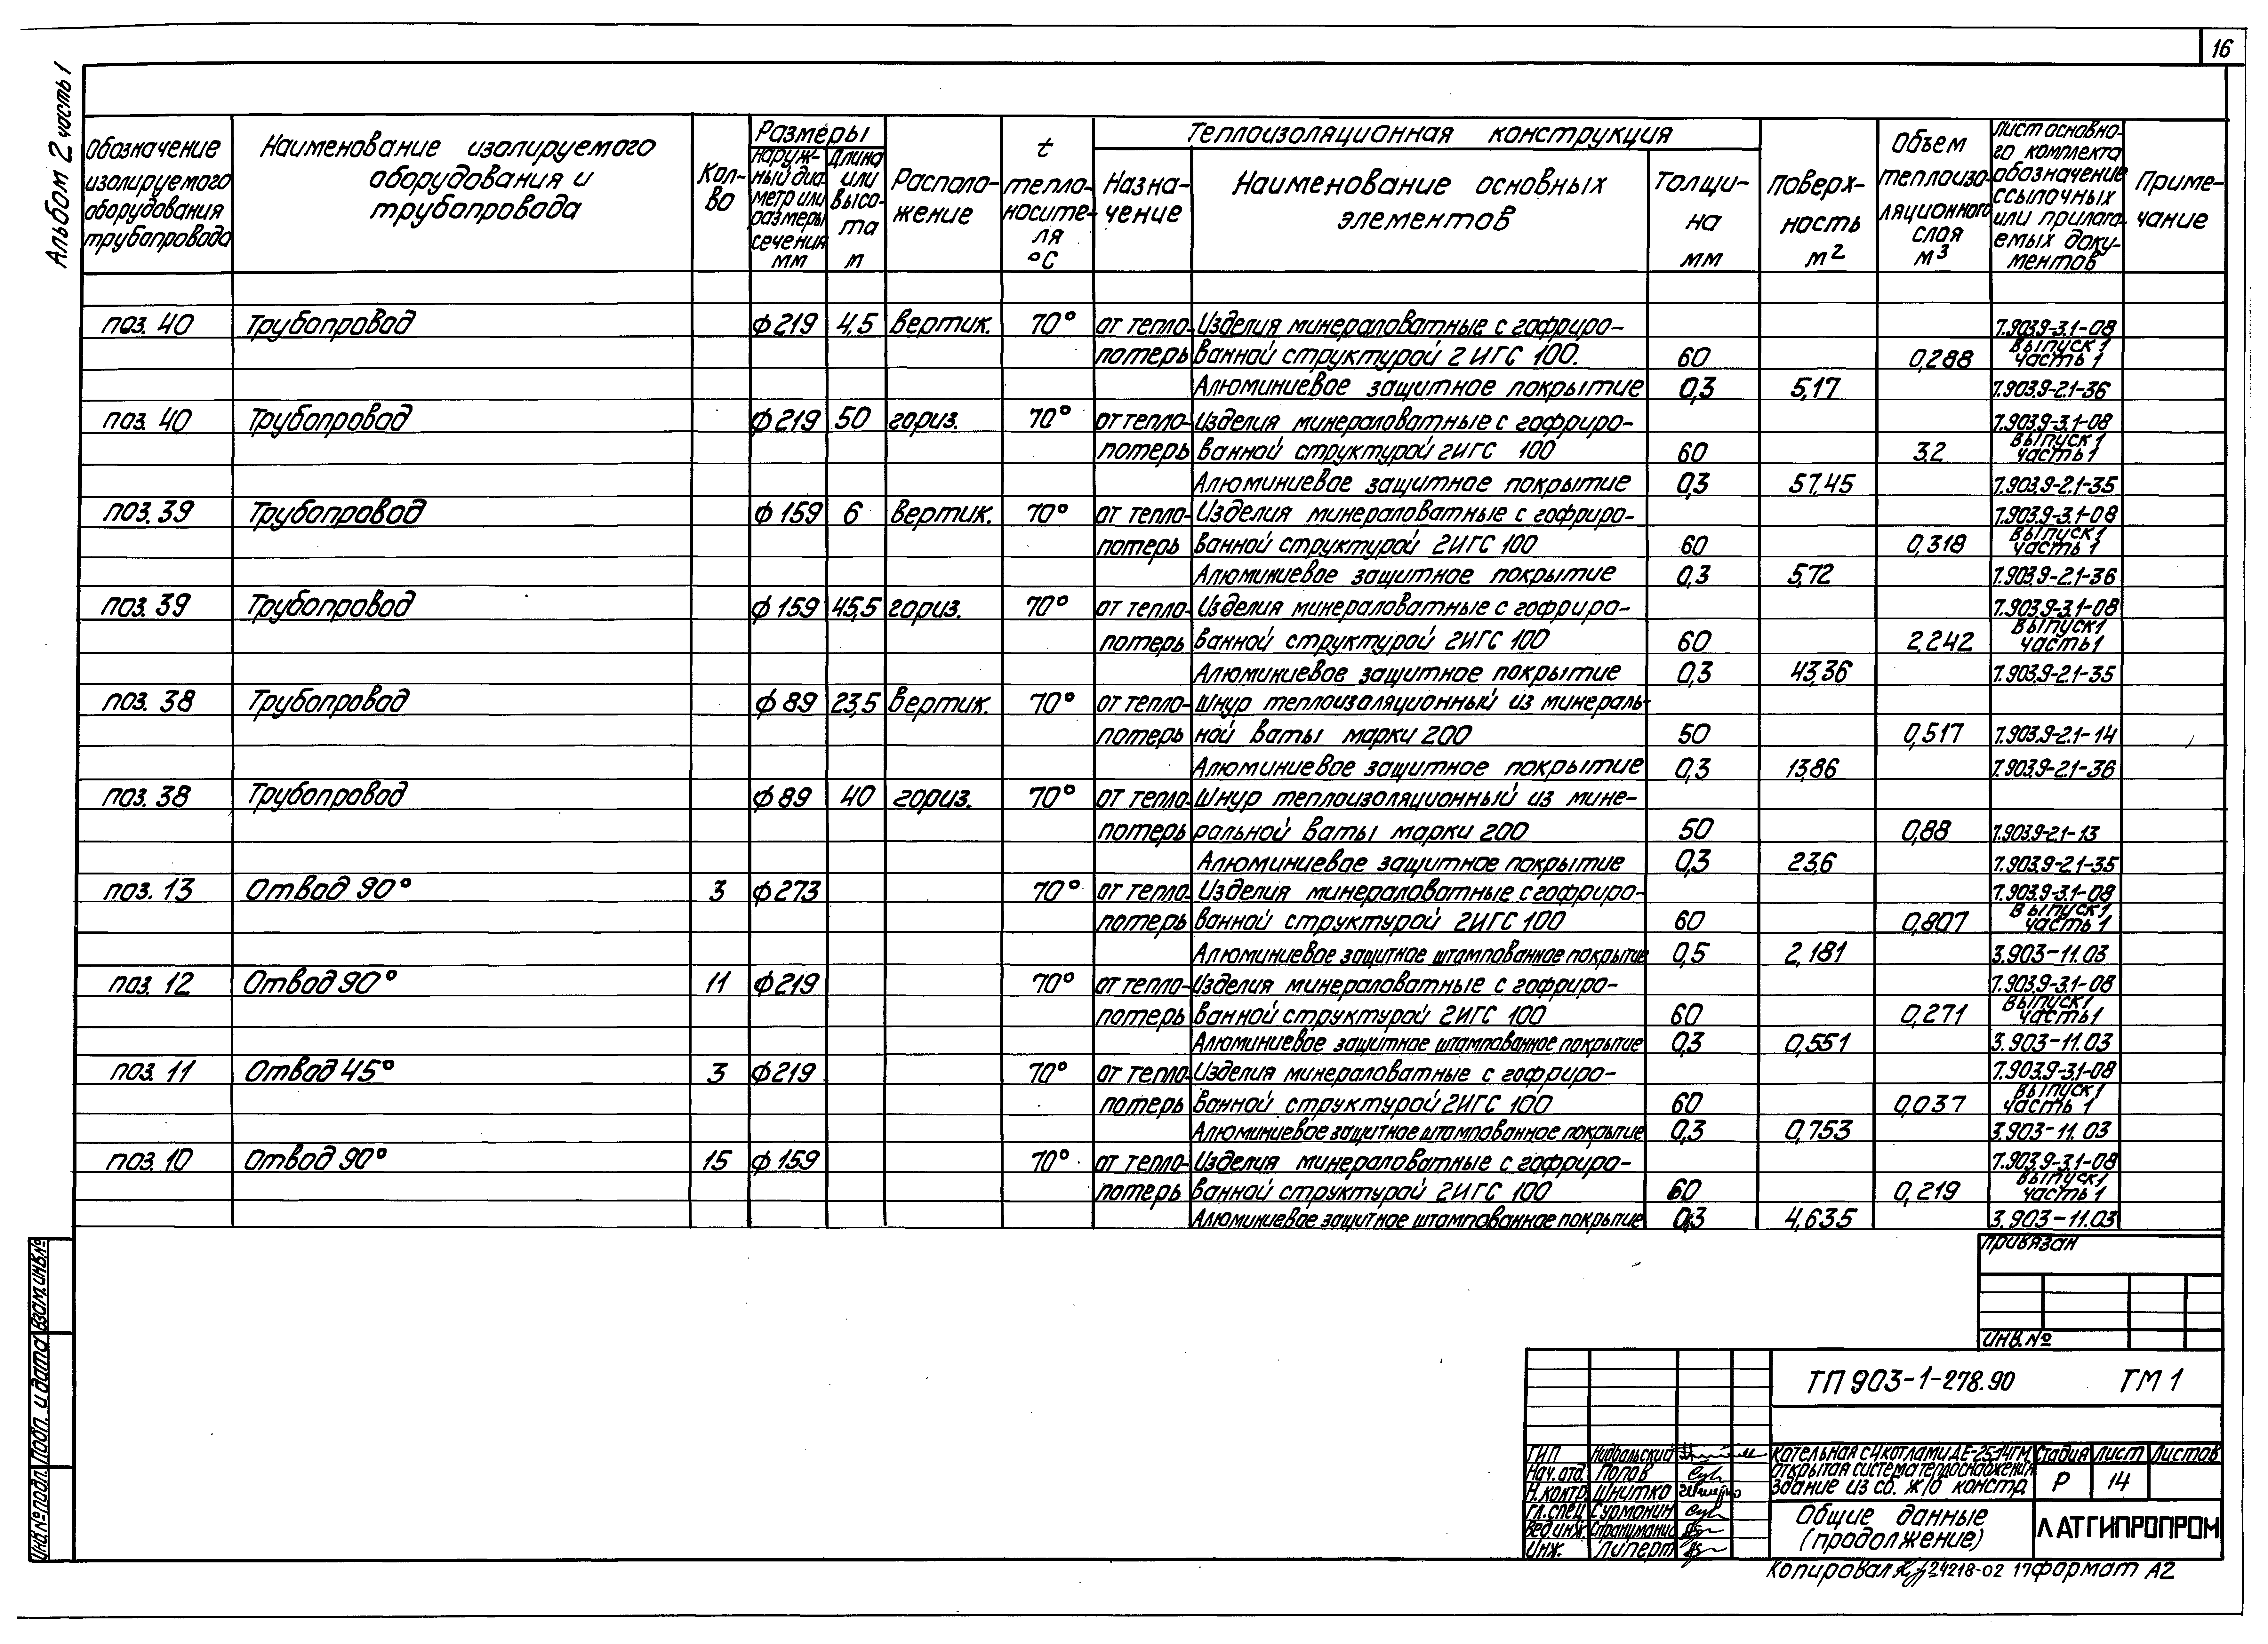 16
Альбом 2 часть 1
Обозначение изолируемого оборудования трубопровода
Наименование изолируемого оборудования и трубопровода
Кол-во
Размеры
наруж-ный диа-метр или размеры сечения мм
длина или высо-та м
Располо-жение
t тепло-носите-ля °С
Теплоизоляционная конструкция
Назна-чение
Наименование основных элементов
Толщи-на мм
Поверх-ность м2
Объем теплоизо-ляционного слоя м3
Лист основно-го комплекта обозначение ссылочных или прилага-емых доку-ментов
Приме-чание
поз. 40 Трубопровод ф219 4,5 вертик. 70° от тепло- Изделия минераловатные с гофриро- 7.903.9-3.1-08
потерь ванной структурой 2ИГС 100. 60 0,288 выпуск 1 часть 1
Алюминиевое защитное покрытие 0,3 5,17 7.903.9-2.1-36
поз. 40 Трубопровод ф219 50 гориз. 70° от тепло- Изделия минераловатные с гофриро- 7.903.9-3.1-08
потерь ванной структурой 2ИГС 100 60 3,2 выпуск 1 часть 1
Алюминиевое защитное покрытие 0,3 57,45 7.903.9-2.1-35
поз. 39 Трубопровод ф159 6 вертик. 70° от тепло- Изделия минераловатные с гофриро- 7.903.9-3.1-08
потерь ванной структурой 2ИГС 100 60 0,318 выпуск 1 часть 1
Алюминиевое защитное покрытие 0,3 5,72 7.903.9-2.1-36
поз. 39 Трубопровод ф159 45,5 гориз. 70° от тепло- Изделия минераловатные с гофриро- 7.903.9-3.1-08
потерь ванной структурой 2ИГС 100 60 2,242 выпуск 1 часть 1
Алюминиевое защитное покрытие 0,3 43,36 7.903.9-2.1-35
поз. 38 Трубопровод ф89 23,5 вертик. 70° от тепло- Шнур теплоизоляционный из минераль-
потерь ной ваты марки 200 50 0,517 7.903.9-2.1-14
Алюминиевое защитное покрытие 0,3 13,86 7.903.9-2.1-36
поз. 38 Трубопровод ф89 40 гориз. 70° от тепло- Шнур теплоизоляционный из мине-
потерь ральной ваты марки 200 50 0,88 7.903.9-2.1-13
Алюминиевое защитное покрытие 0,3 23,6 7.903.9-2.1-35
поз. 13 Отвод 90° 3 ф273 70° от тепло- Изделия минераловатные с гофриро- 7.903.9-3.1-08
потерь ванной структурой 2ИГС 100 60 0,807 выпуск 1 часть 1
Алюминиевое защитное штампованное покрытие 0,5 2,181 3.903-11.03
поз. 12 Отвод 90° 11 ф219 70° от тепло- Изделия минераловатные с гофриро- 7.903.9-3.1-08
потерь ванной структурой 2ИГС 100 60 0,271 выпуск 1 часть 1
Алюминиевое защитное штампованное покрытие 0,3 0,551 3.903-11.03
поз. 11 Отвод 45° 3 ф219 70° от тепло- Изделия минераловатные с гофриро- 7.903.9-3.1-08
потерь ванной структурой 2ИГС 100 60 0,037 выпуск 1 часть 1
Алюминиевое защитное штампованное покрытие 0,3 0,753 3.903-11.03
поз. 10 Отвод 90° 15 ф159 70° от тепло- Изделия минераловатные с гофриро- 7.903.9-3.1-08
потерь ванной структурой 2ИГС 100 60 0,219 выпуск 1 часть 1
Алюминиевое защитное штампованное покрытие 0,3 4,635 3.903-11.03
Привязан
Инв.№
ТП 903-1-278.90 ТМ 1
ГИП
Нач. отд. Попов
Н. контр. Шнитко
Гл. спец. Сурмонин
Вед. инж.
Инж. Липерт
Котельная с 4 котлами ДЕ-25-14ГМ.
Открытая система теплоснабжения
Здание из сб. ж/б констр.
Стадия Лист Листов
Р 14
Общие данные
(продолжение)
ЛАТГИПРОПРОМ
Копировал 24218-02 17 формат А2
Инв.№ подл. Подп. и дата Взам. инв.№